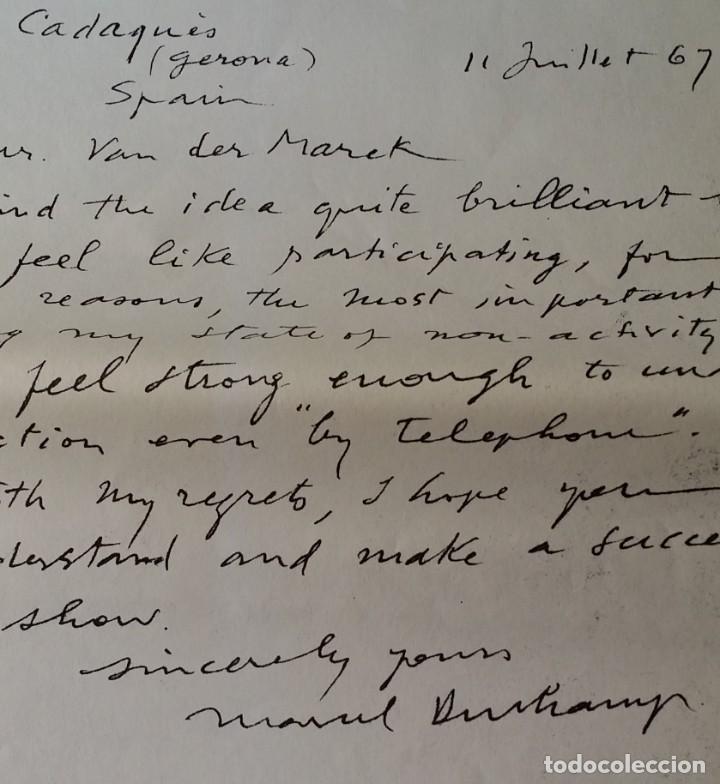 Cadaqués
(Gerona)
11 Juillet 67
Spain
ur. Van der Marck
ind the idea quite brilliant
feel like participating, for
reasons, the most important
g my state of non-activity
feel strong enough to un
ction even "by telephone".
ith my regrets, I hope you
derstand and make a succe
show.
sincerely yours
Marcel Duchamp
todocoleccion